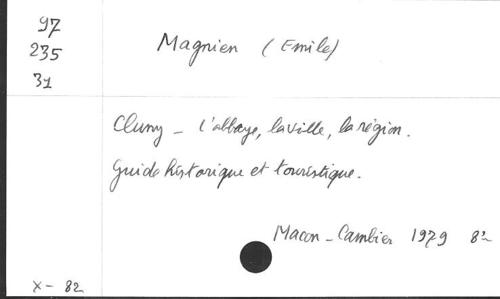 97
235
31
Magnien (Emile)
Cluny _ l'abbaye, la ville, la région.
Guide historique et touristique.
Macon _ Cambier 1979 8°
X - 82